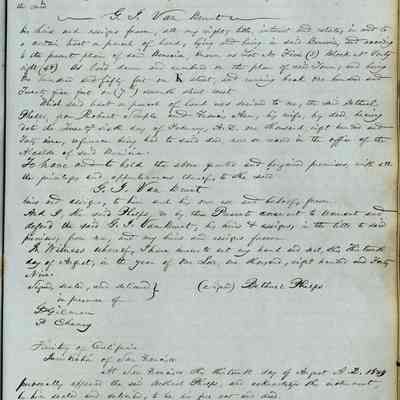 the said
G. J. Van Brunt
his heirs and assigns forever, all my right, title, interest and estate, in and to
a certain lot or parcel of land, lying and being in said Benicia, and according
to the present plan of said Benicia, known as Lot No Five (5) Block No Forty
eight (48) As laid down and numbered on the plan of said Town, and being
One hundred and fifty feet on K street, and running back one hundred and
Twenty five feet on (7") seventh street west.
Which said lot or parcel of land was deeded to me, the said Bethuel
Phelps, from Robert Semple and Frances Ann, his wife, by deed, bearing
date the Twenty sixth day of February, A.D. one thousand, eight hundred and
Forty nine, reference being had to said deed, now on record in the office of the
Alcalde of said Benicia.
To have and to hold the above granted and bargained premises, with all
the privileges and appurtenances thereof, to the said
G. J. Van Brunt
heirs and assigns, to him and his own use and behoof, forever.
And I, the said Phelps, do by these Presents covenant to warrant and
defend the said G. J. Van Brunt, his heirs & assigns, in the title to said
premises, from me, and my heirs and assigns forever.
In Witness whereof, I have hereunto set my hand and seal, this Thirteenth
day of August, in the year of Our Lord, one thousand, eight hundred and Forty
Nine.
Signed, sealed, and delivered } (signed) Bethuel Phelps
in presence of
Gilman
Chaney
Territory of California
District of San Francisco
At San Francisco this thirteenth day of August A.D. 1849
personally appeared the said Bethuel Phelps, and acknowledged the instrument,
by him sealed and delivered, to be his free act and deed